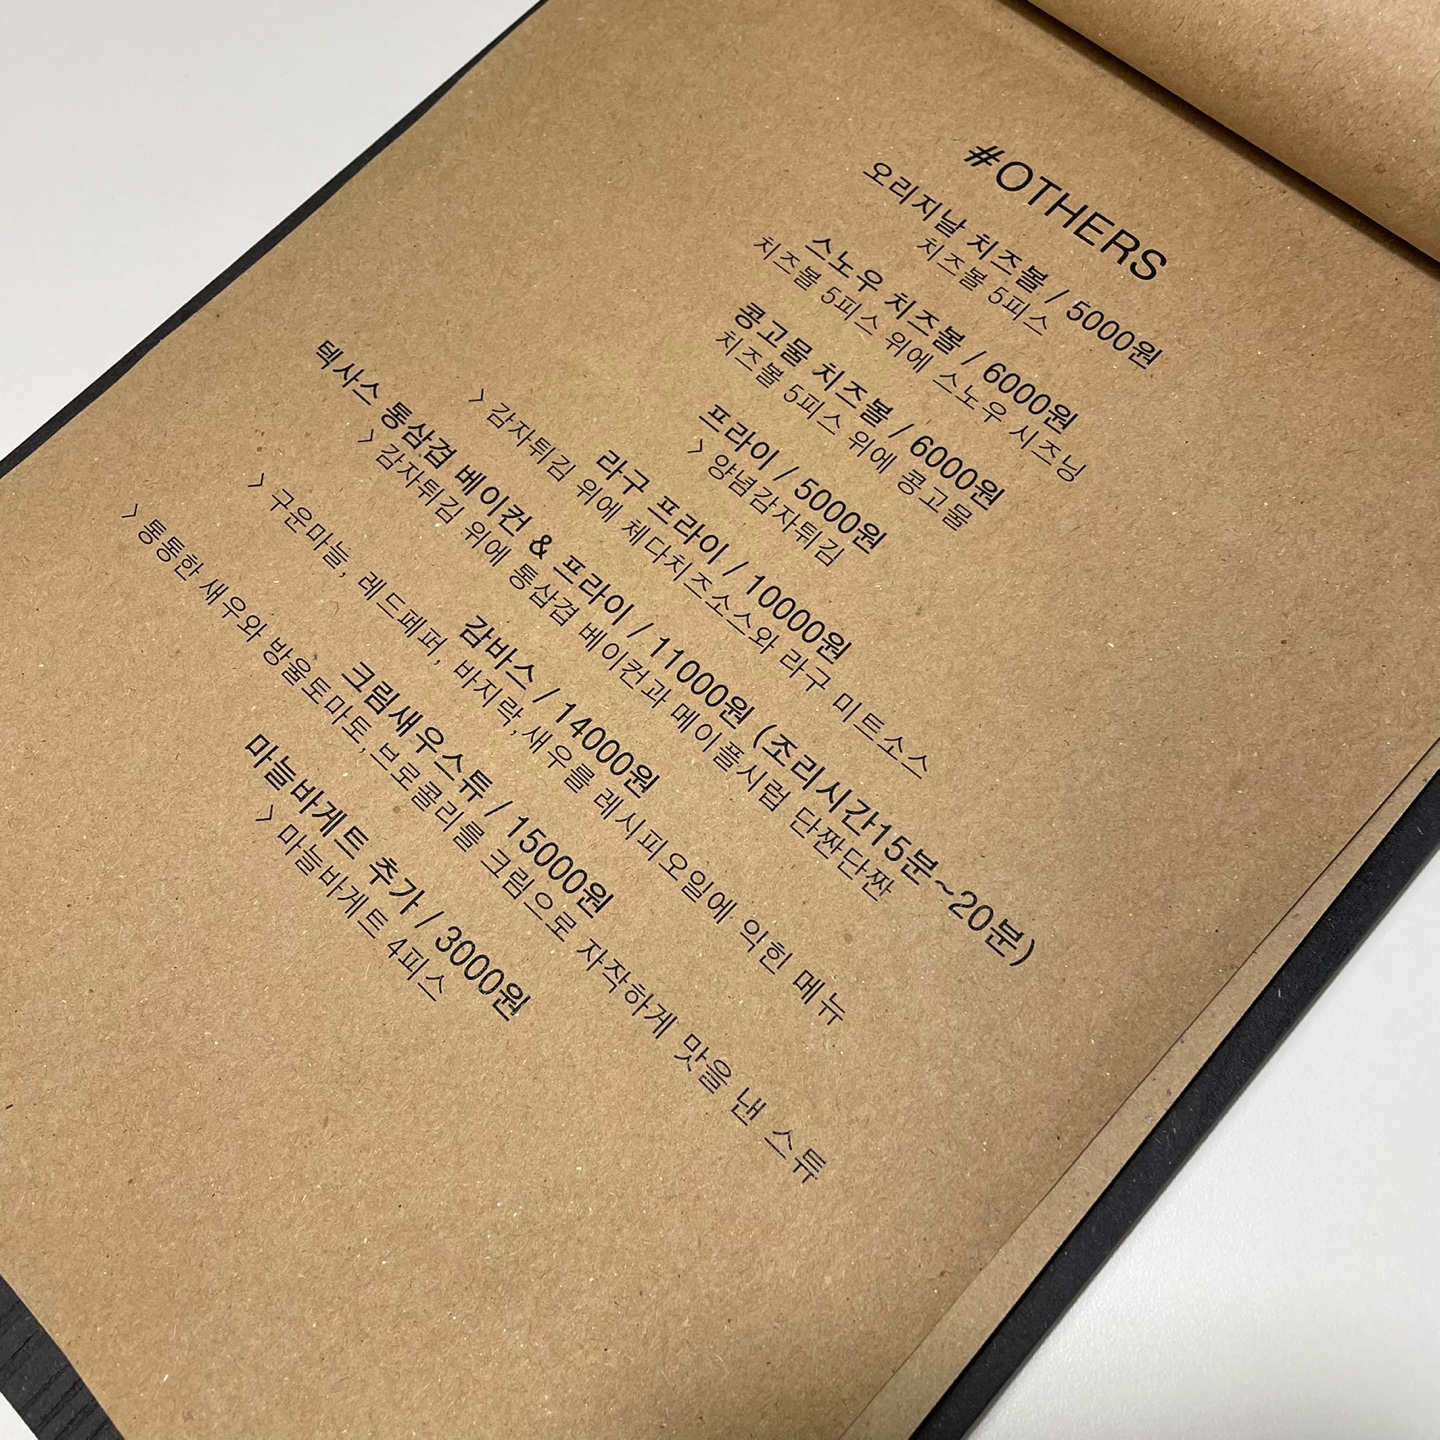 #OTHERS
오리지날 치즈볼 / 5000원
치즈볼 5피스
스노우 치즈볼 / 6000원
치즈볼 5피스 위에 스노우 시즈닝
콩고물 치즈볼 / 6000원
치즈볼 5피스 위에 콩고물
프라이 / 5000원
> 양념감자튀김
라구 프라이 / 10000원
> 감자튀김 위에 체다치즈소스와 라구 미트소스
텍사스 통삼겹 베이컨 & 프라이 / 11000원 (조리시간15분~20분)
> 감자튀김 위에 통삼겹 베이컨과 메이플시럽 단짠단짠
감바스 / 14000원
> 구운마늘, 레드페퍼, 바지락,새우를 레시피오일에 익힌 메뉴
크림새우스튜 / 15000원
> 통통한 새우와 방울토마토,브로콜리를 크림으로 자작하게 맛을 낸 스튜
마늘바게트 추가 / 3000원
> 마늘바게트 4피스